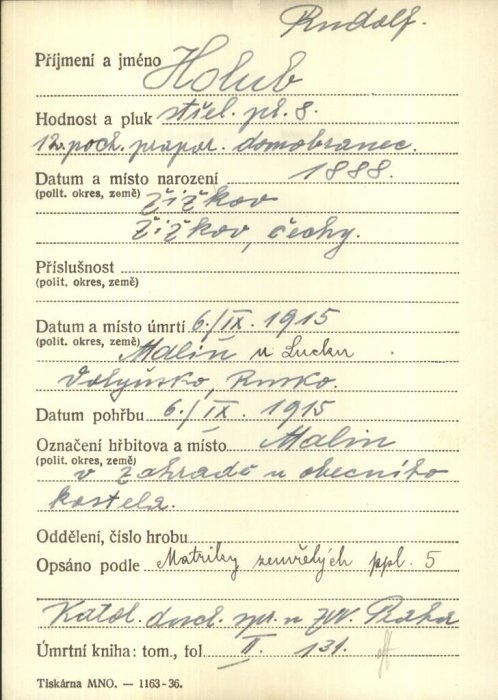 Rudolf.
Příjmení a jméno Holub
Hodnost a pluk střel. pl. 8.
12. poch. prapor. domobranec.
Datum a místo narození 1888.
(polit. okres, země) Žižkov
Žižkov, Čechy.
Příslušnost
(polit. okres, země)
Datum a místo úmrtí 6./IX. 1915
(polit. okres, země) Malin u Lucku
Volyňsko, Rusko.
Datum pohřbu 6./IX. 1915
Označení hřbitova a místo Malin
(polit. okres, země) v zahradě u obecního
kostela.
Oddělení, číslo hrobu
Opsáno podle Matriky zemřelých ppl. 5
Katol. duch. spr. u ZVV. Praha
Úmrtní kniha: tom., fol II. 131.
Tiskárna MNO. — 1163-36.